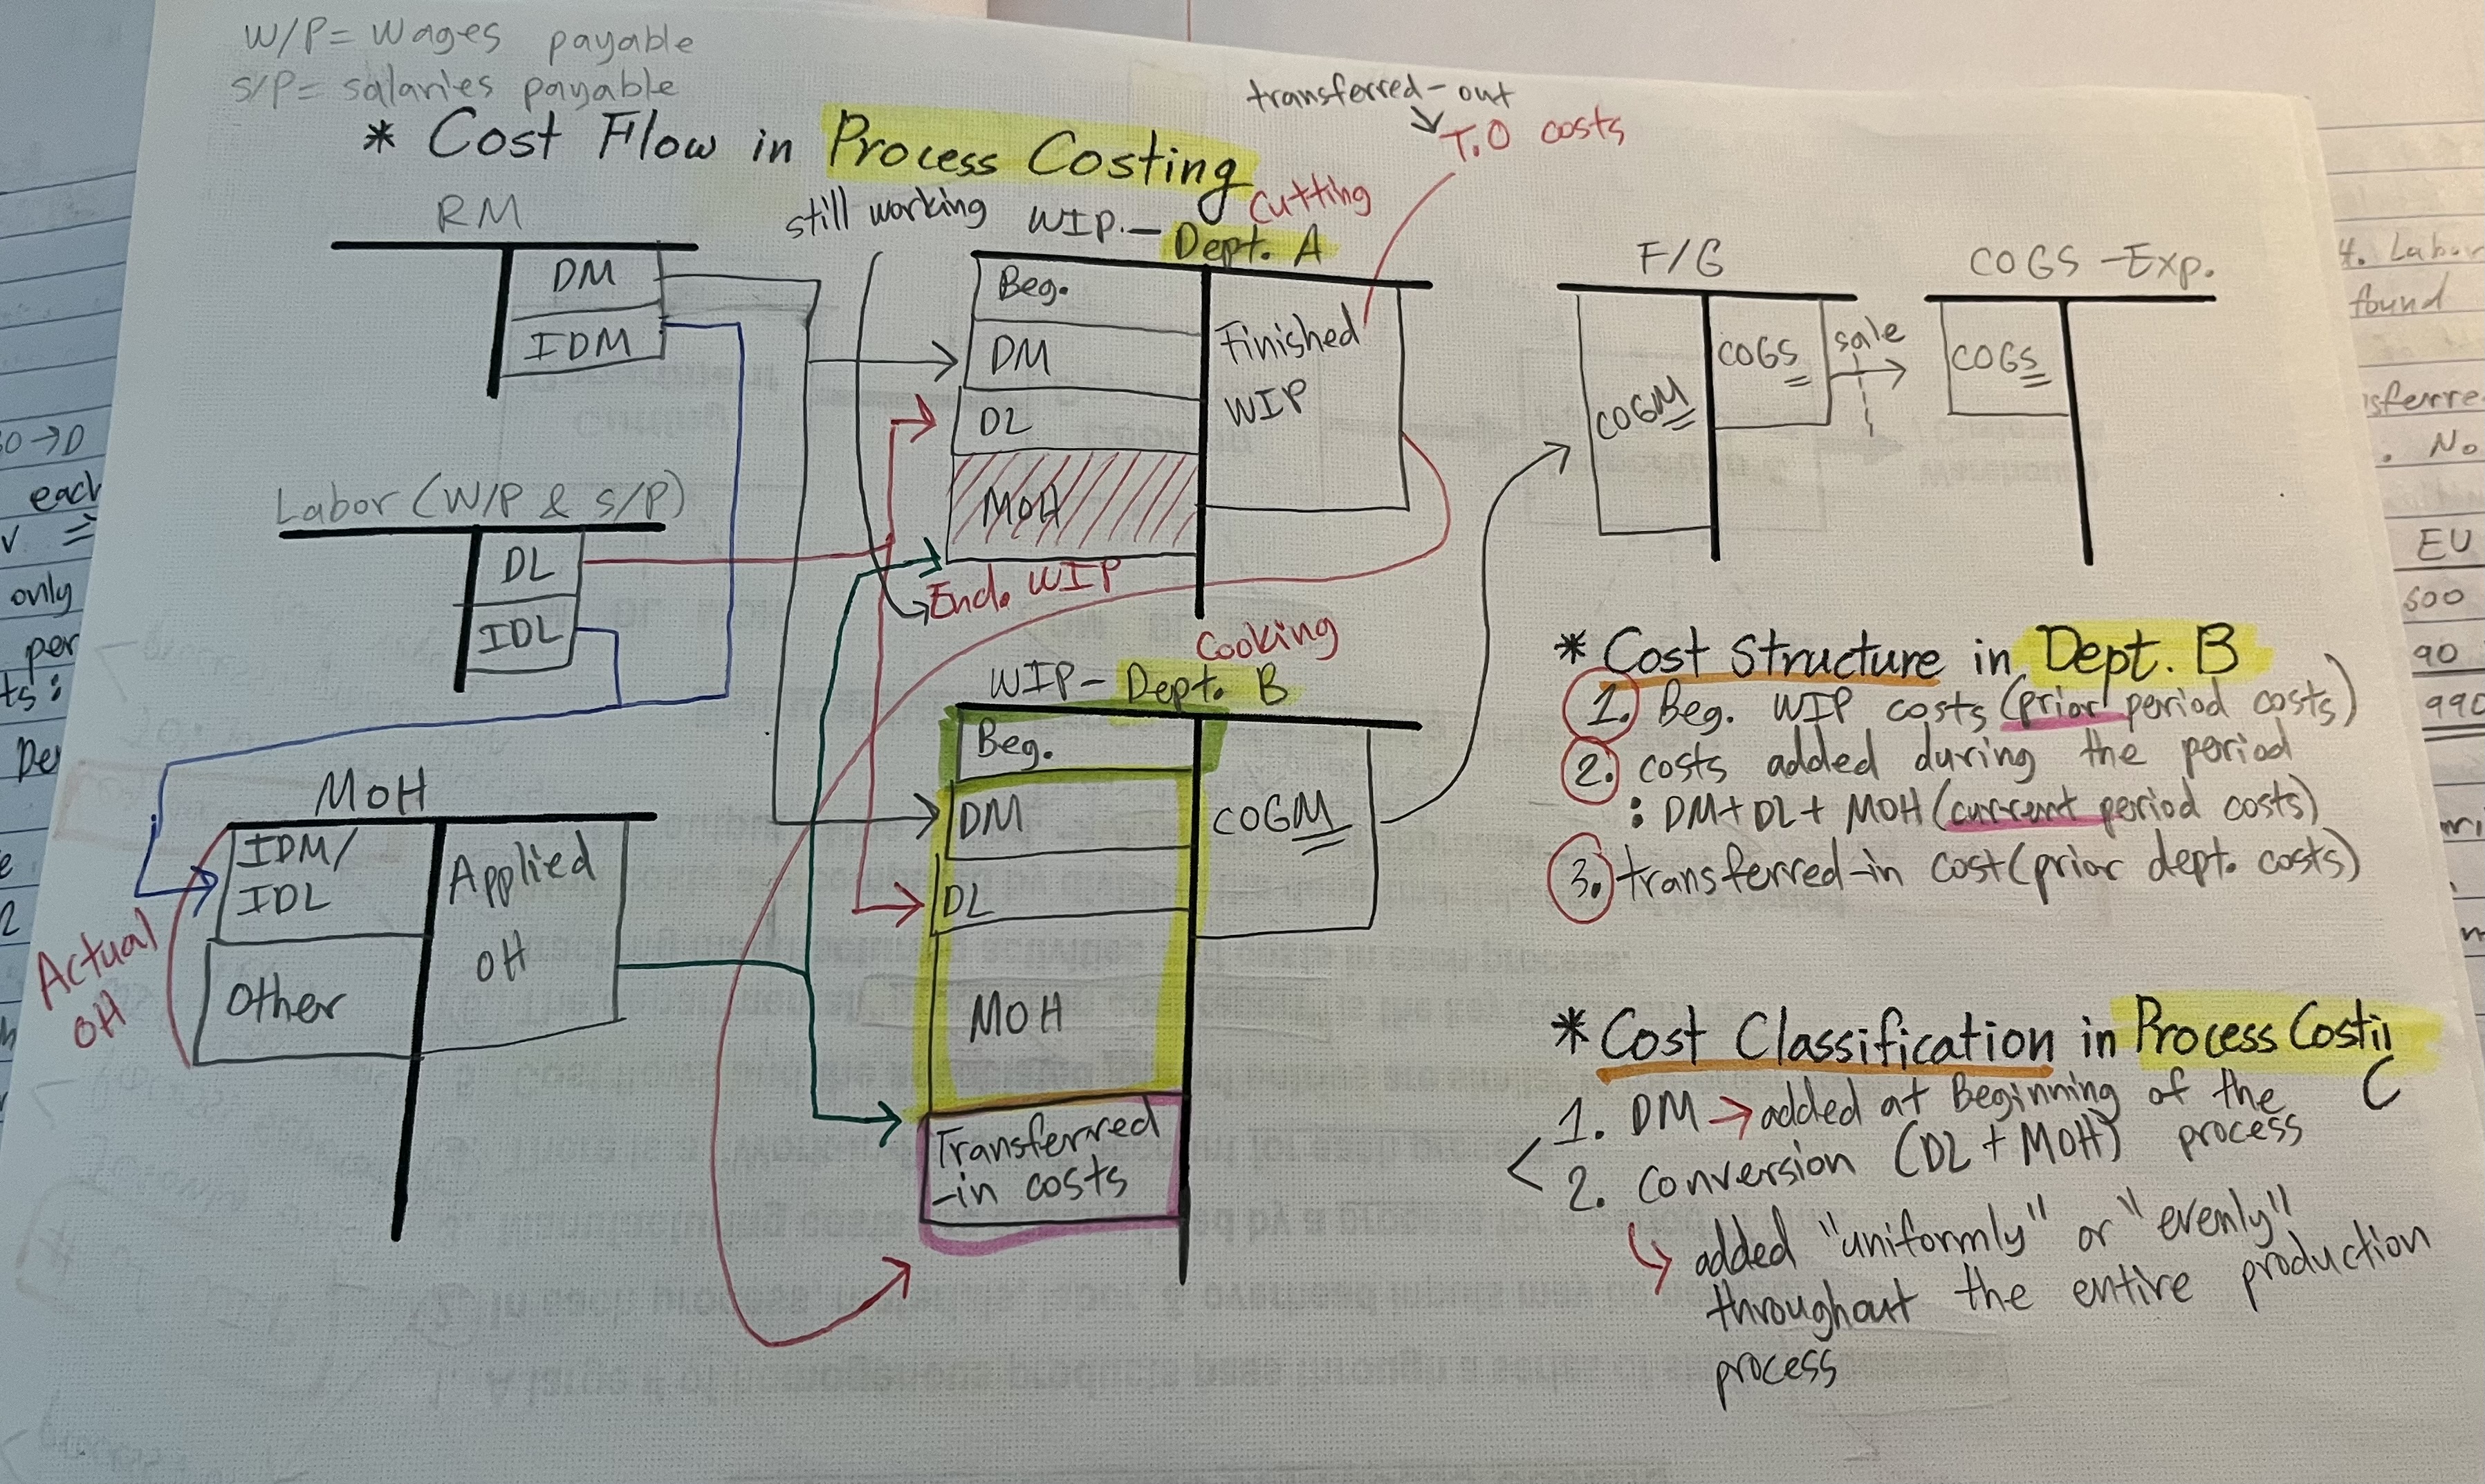 W/P= Wages payable
S/P= salaries payable
* Cost Flow in Process Costing
transferred-out
T.O costs
RM
DM
IDM
Labor (W/P & S/P)
DL
IDL
MOH
IDM/
IDL
Other
Applied
OH
Actual
OH
still working
WIP.- Dept. A
Cutting
Beg.
DM
DL
MOH
End. WIP
Finished
WIP
Cooking
WIP- Dept. B
Beg.
DM
DL
MOH
Transferred
-in costs
COGM
F/G
COGM
COGS
sale
COGS -Exp.
COGS
* Cost Structure in Dept. B
1. Beg. WIP costs (prior period costs)
2. costs added during the period
: DM+DL+ MOH (current period costs)
3. transferred-in cost (prior dept. costs)
* Cost Classification in Process Costin
1. DM → added at Beginning of the
process
2. Conversion (DL + MOH)
↳ added "uniformly" or "evenly"
throughout the entire production
process
4. Labor
found
sferre
. No
EU
600
90
990
50→D
each
only
per
ts:
De